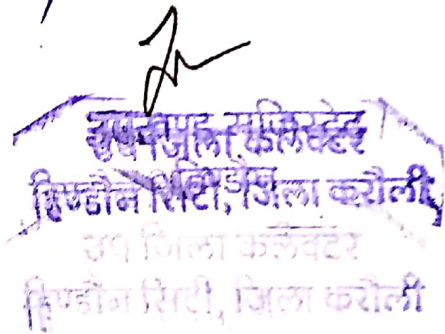 उप जिला कलेक्टर
हिण्डौन सिटी, जिला करौली
उप जिला कलेक्टर
हिण्डौन सिटी, जिला करौली